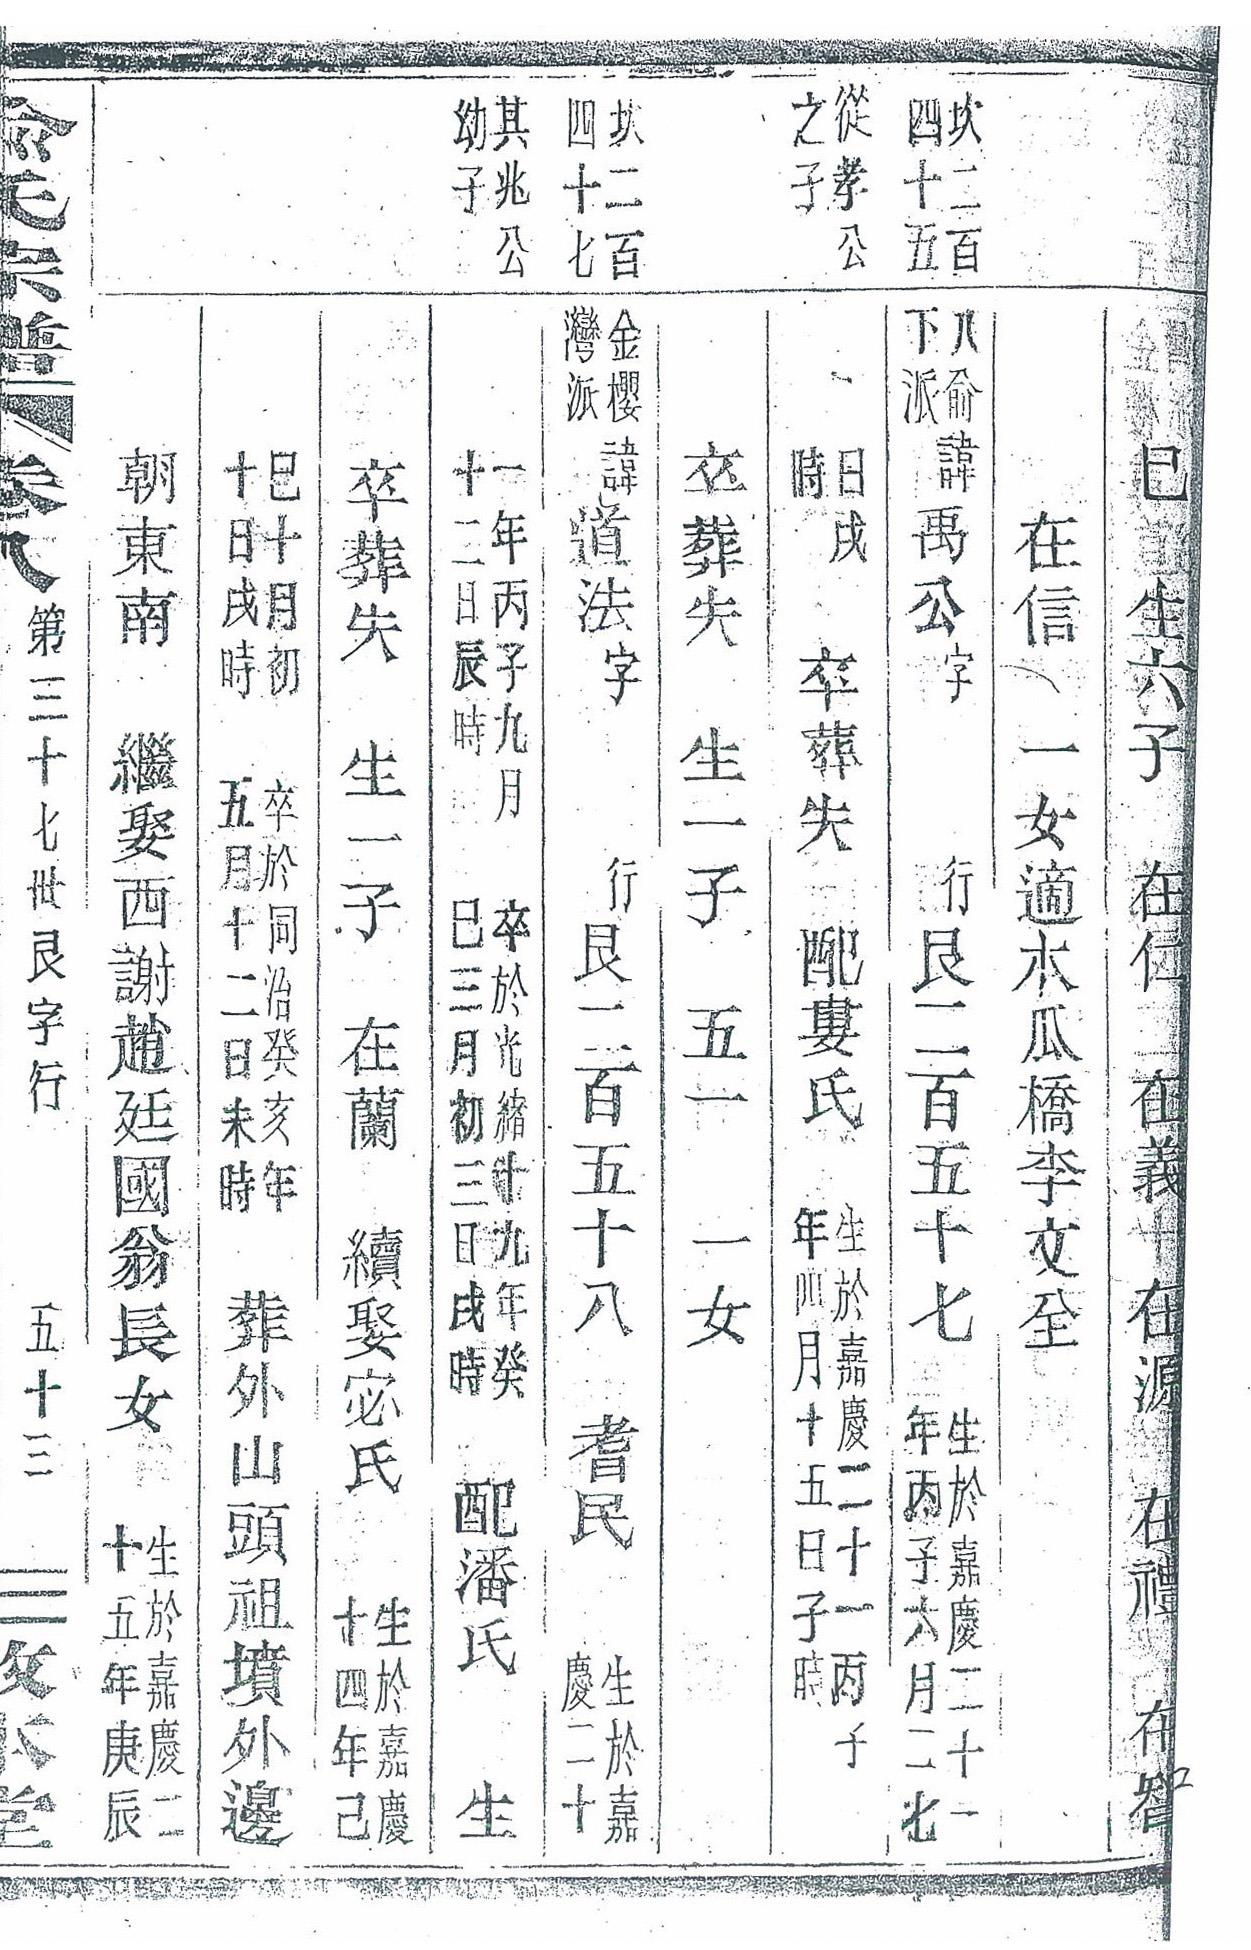 巳 生六子 在仁 在義 在源 在禮 在智
在信 一女適木瓜橋李文至
坎二百
四十五
八俞
下派
諱禹公字 行艮二百五十七
生於嘉慶二十一
年丙子六月二十
從孝公
之子
日戌
時
卒葬失 配婁氏
生於嘉慶二十一丙子
年四月十五日子時
卒葬失 生一子 五一 一女
坎二百
四十七
金櫻
灣派
諱道法字 行艮二百五十八 耆民
生於嘉
慶二十
其兆公
幼子
一年丙子九月
十二日辰時
卒於光緒十九年癸
巳三月初三日戌時
配潘氏 生
卒葬失 生一子 在蘭 續娶宓氏
生於嘉慶
十四年己
巳十月初
十日戌時
卒於同治癸亥年
五月十二日未時
葬外山頭祖墳外邊
朝東南 繼娶西謝趙廷國翁長女
生於嘉慶二
十五年庚辰
俞氏宗譜 卷八 第三十七世艮字行 五十三